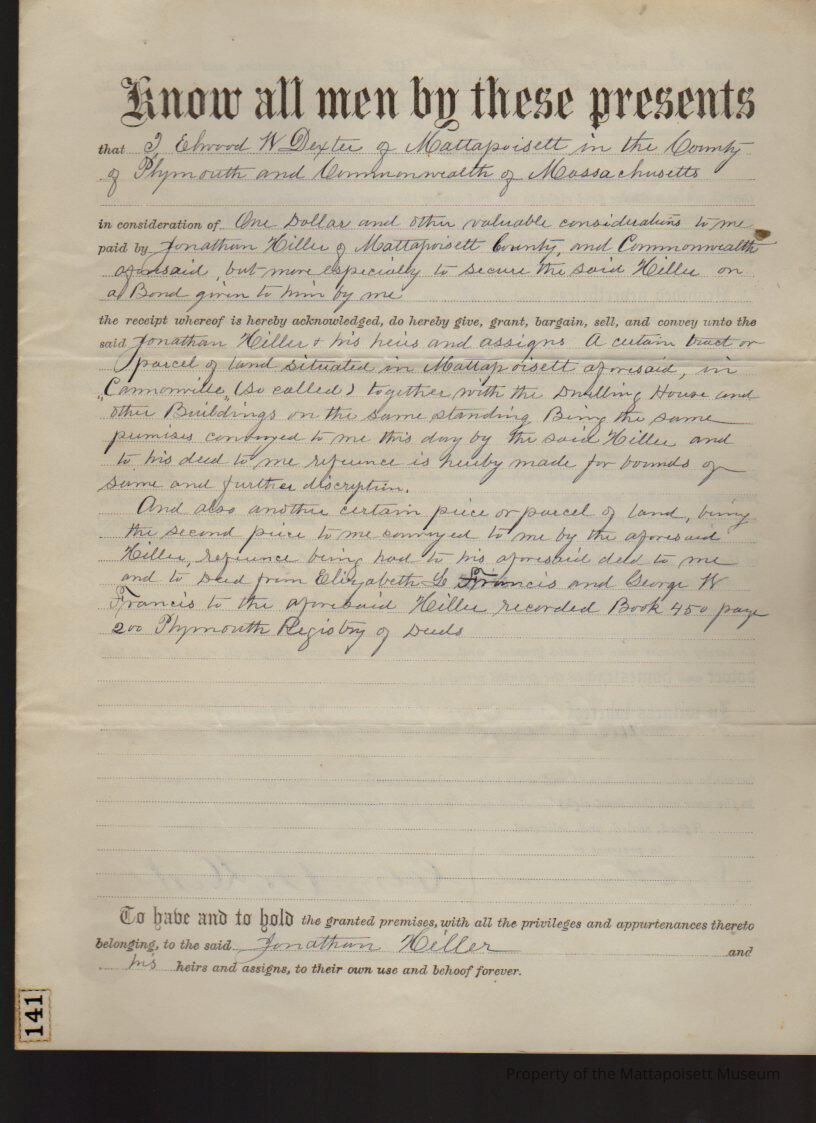 Know all men by these presents
that I Elwood W Dexter of Mattapoisett in the County
of Plymouth and Commonwealth of Massachusetts
in consideration of One Dollar and other valuable considerations to me
paid by Jonathan Hiller of Mattapoisett County, and Commonwealth
aforesaid, but more especially to secure the said Hiller on
a Bond given to him by me
the receipt whereof is hereby acknowledged, do hereby give, grant, bargain, sell, and convey unto the
said Jonathan Hiller & his heirs and assigns A certain tract or
parcel of land situated in Mattapoisett aforesaid, in
"Cannonville" (so called) together with the Dwelling House and
other Buildings on the same standing Being the same
premises conveyed to me this day by the said Hiller and
to his deed to me reference is hereby made for bounds of
same and further discription.
And also another certain piece or parcel of land, being
the second piece to me conveyed to me by the aforesaid
Hiller, reference being had to his aforesaid deed to me
and to Deed from Elizabeth Francis and George W
Francis to the aforesaid Hiller recorded Book 450 page
200 Plymouth Registry of Deeds
To have and to hold the granted premises, with all the privileges and appurtenances thereto
belonging, to the said Jonathan Hiller and
his heirs and assigns, to their own use and behoof forever.
141
Property of the Mattapoisett Museum